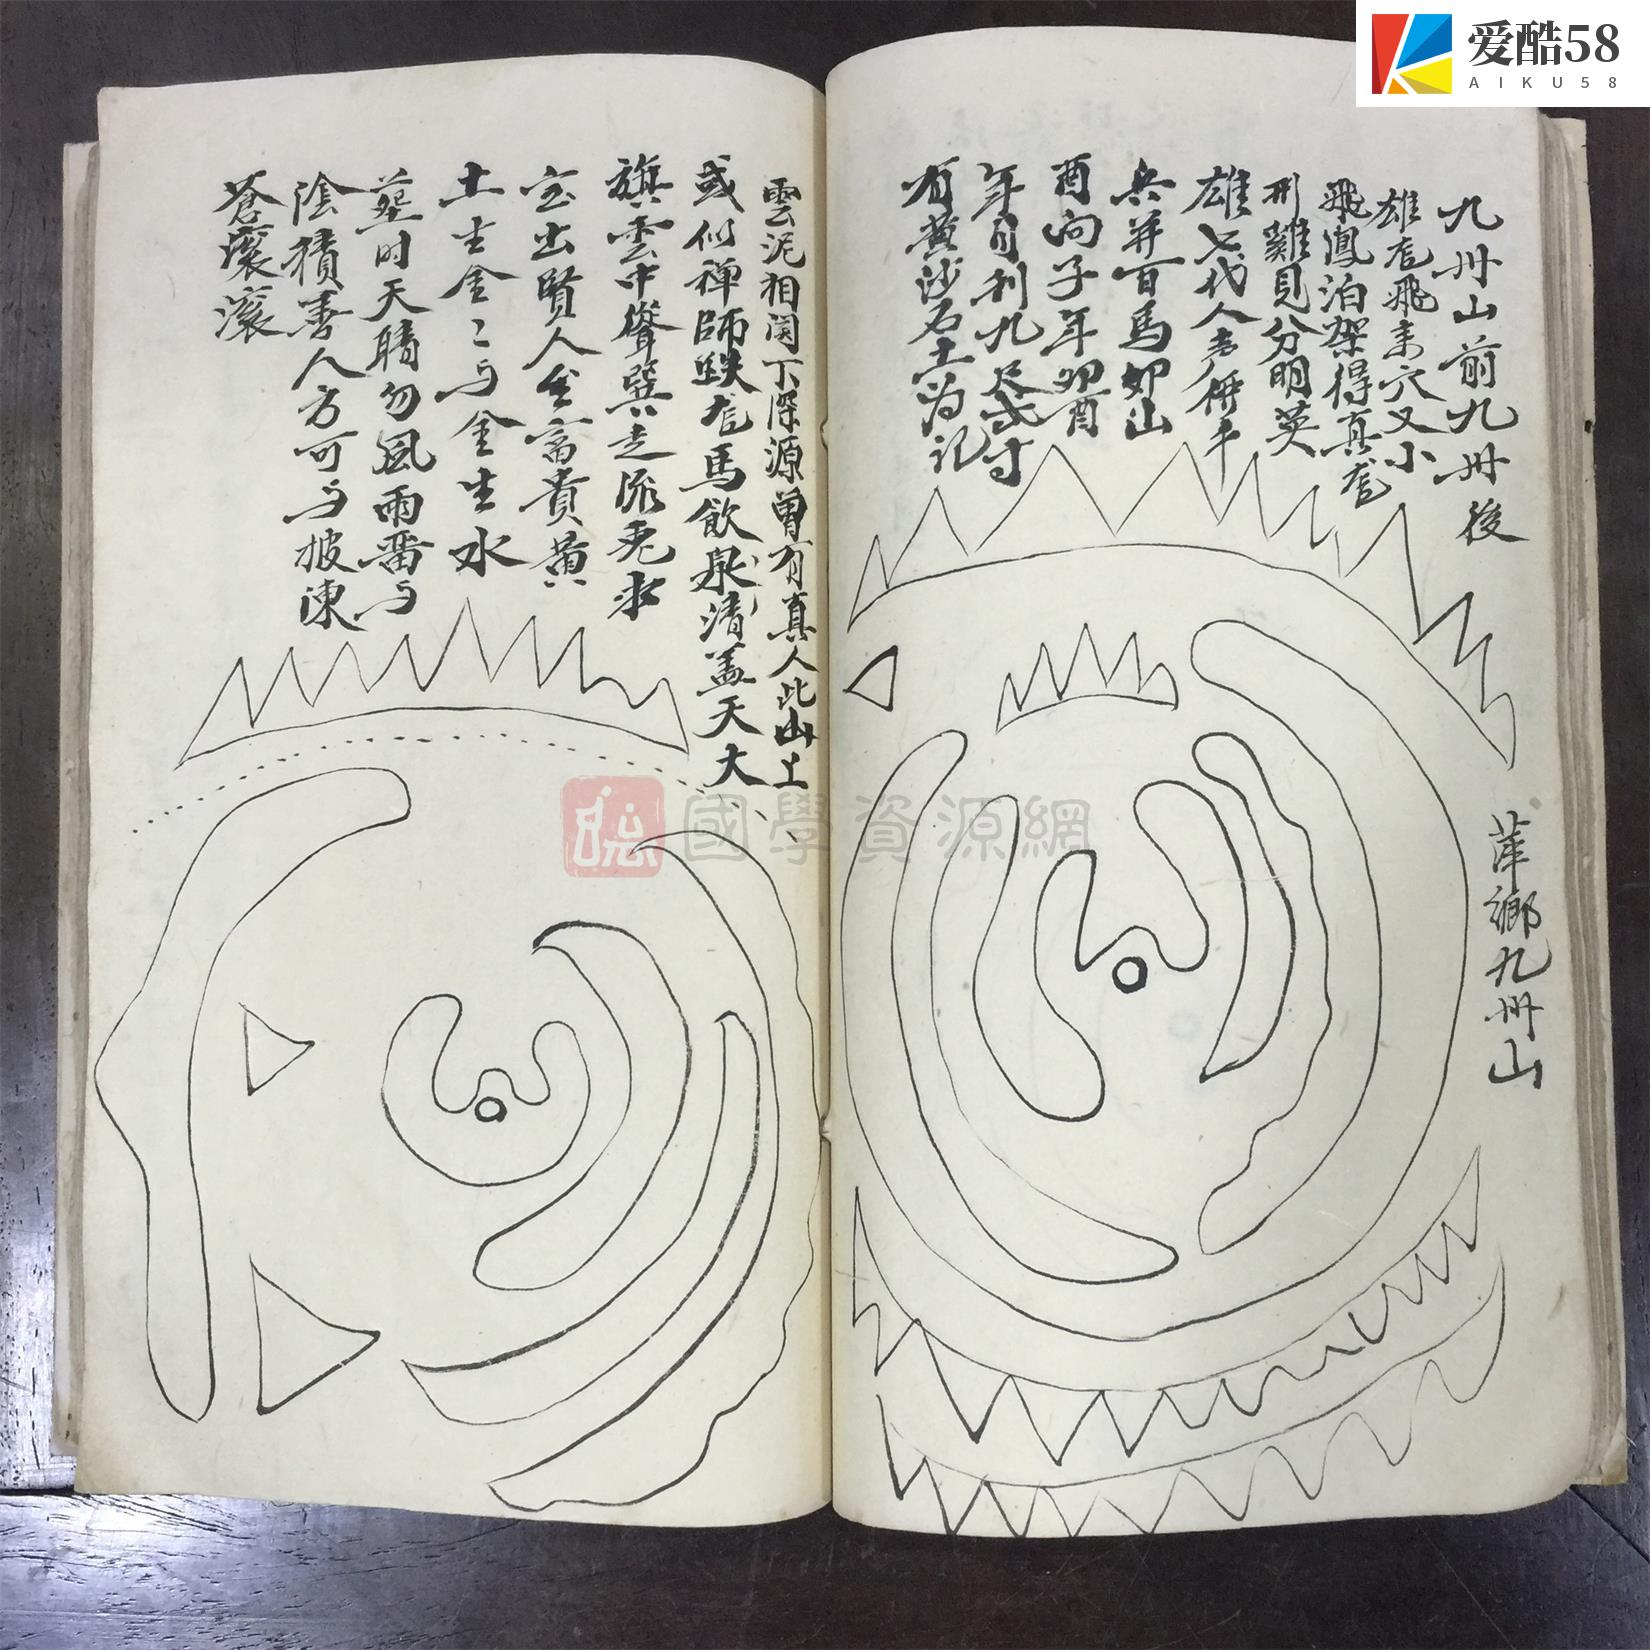 爱酷58
AIKU58
九卅山前九卅後
雄龙飛来穴又小
飛鳳泊架得真龙
刑雞見分明英
雄七代人多
兵并百馬卯山
酉向子年卯酉
年月利九尺寸
有黄沙石土为记
萍鄉九卅山
雲泥相関下深源曾有真人此山上
或似禅師趺龙馬飲泉清盖天大
旗雲中聳巽走流
出賢人全富貴黄
土生金〻与金生水
塟时天晴勿風雨番与
陰積善人方可与披涷
蒼滾滾
國學資源網